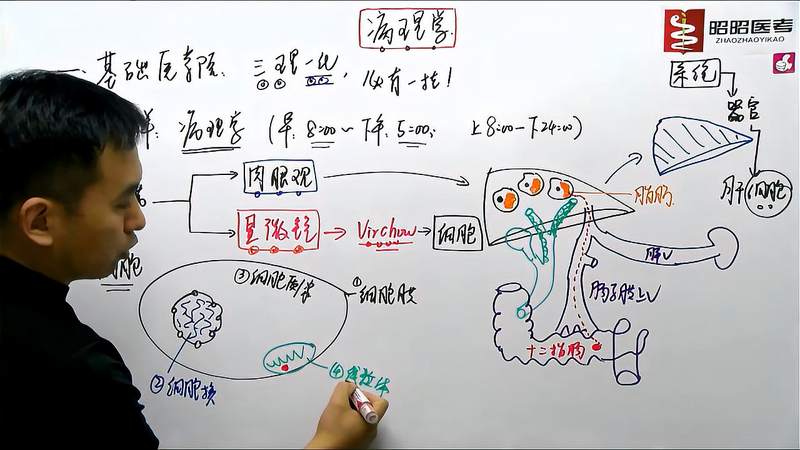 病理学
昭昭医考
ZHAOZHAOYIKAO
基础医学院: 三理一化, 必有一挂!
系统
器官
病理学 (早: 8:00～下午: 5:00; 上8:00-下24:00)
肉眼观
肝细胞
显微镜
Virchow
细胞
脾V
肠系膜上V
十二指肠
③细胞质/浆
①细胞膜
②细胞核
④线粒体